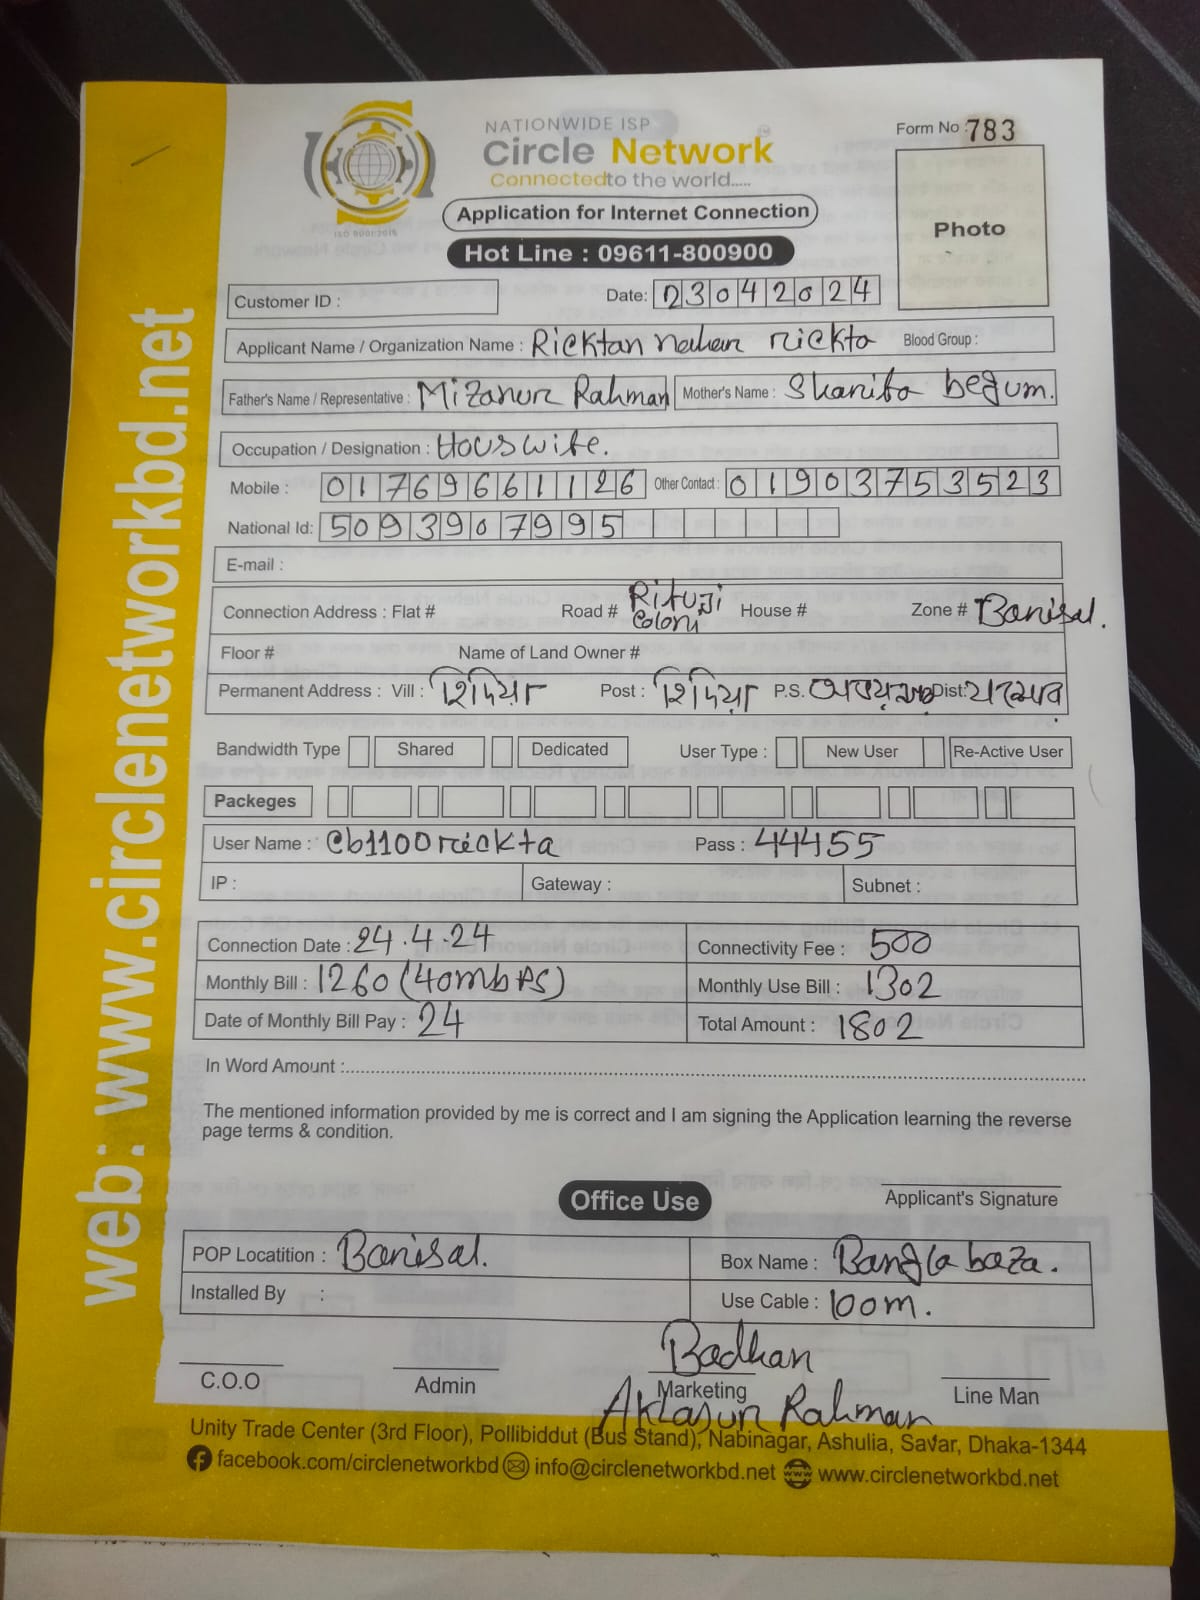 NATIONWIDE ISP
Circle Network
Connected to the world.....
ISO 9001:2015
Form No : 783
Photo
Application for Internet Connection
Hot Line : 09611-800900
Customer ID :
Date: 23042024
Applicant Name / Organization Name : Ricktan nahan rickta Blood Group :
Father's Name / Representative : Mizanur Rahman Mother's Name : Shanifa begum.
Occupation / Designation : Houswife.
Mobile : 01769661126 Other Contact : 01903753523
National Id: 5093907995
E-mail :
Connection Address : Flat # Road # Rituji Coloni House # Zone # Barisal.
Floor # Name of Land Owner #
Permanent Address : Vill : হিদিয়া Post : হিদিয়া P.S. Dist: যশোর
Bandwidth Type Shared Dedicated User Type : New User Re-Active User
Packeges
User Name : cb1100rickta Pass : 44455
IP : Gateway : Subnet :
Connection Date : 24.4.24 Connectivity Fee : 500
Monthly Bill : 1260 (40mbps) Monthly Use Bill : 1302
Date of Monthly Bill Pay : 24 Total Amount : 1802
In Word Amount :
The mentioned information provided by me is correct and I am signing the Application learning the reverse
page terms & condition.
Applicant's Signature
Office Use
POP Locatition : Barisal. Box Name : Bangla baza.
Installed By : Use Cable : 100m.
Badhan
C.O.O Admin Marketing Line Man
Rahman
Unity Trade Center (3rd Floor), Pollibiddut (Bus Stand), Nabinagar, Ashulia, Savar, Dhaka-1344
facebook.com/circlenetworkbd info@circlenetworkbd.net www.circlenetworkbd.net
web: www.circlenetworkbd.net